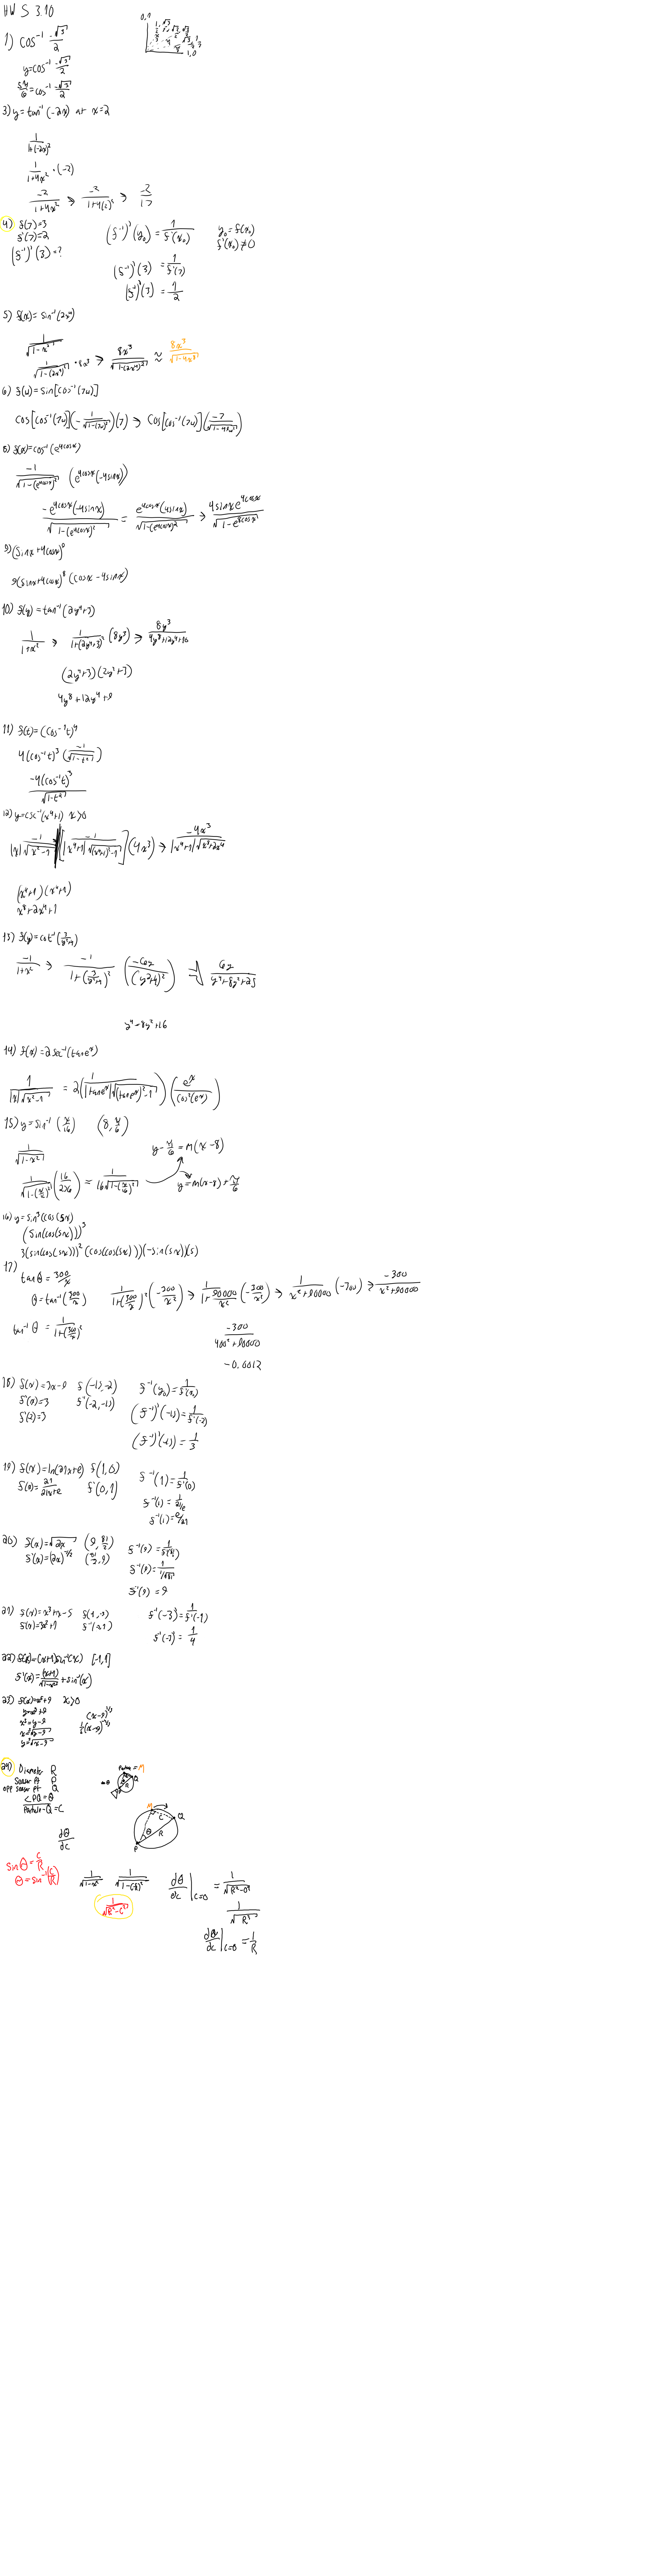 HW S 3.10
1) cos⁻¹ -√3/2
0,1
1,0
y=cos⁻¹ -√3/2
5π/6 = cos⁻¹ -√3/2
3) y=tan⁻¹(-2x) at x=2
1/(1+(-2x)²)
1/(1+4x²) · (-2)
-2/(1+4x²) → -2/(1+4(2)² → -2/17
4) f(7)=3
f'(7)=2
(f⁻¹)'(3)=?
(f⁻¹)'(y₀) = 1/f'(x₀)
y₀=f(x₀)
f'(x₀)≠0
(f⁻¹)'(3) = 1/f'(7)
(f⁻¹)'(3) = 1/2
5) f(x)=sin⁻¹(2x⁴)
1/√(1-x²)
1/√(1-(2x⁴)²) · 8x³ → 8x³/√(1-(2x⁴)²) ≈ 8x³/√(1-4x⁸)
6) f(u)=sin[cos⁻¹(7u)]
cos[cos⁻¹(7u)](-1/√(1-(7u)²))(7) → cos[cos⁻¹(7u)](-7/√(1-49u²))
8) f(x)=cos⁻¹(e^4cosx)
-1/√(1-(e^4cosx)²) (e^4cosx(-4sinx))
-e^4cosx(-4sinx)/√(1-(e^4cosx)²) = e^4cosx(4sinx)/√(1-(e^4cosx)²) → 4sinxe^4cosx/√(1-e^8cosx)
9) (sinx+4cosx)⁹
9(sinx+4cosx)⁸(cosx-4sinx)
10) f(y)=tan⁻¹(2y⁴+3)
1/(1+x²) → 1/(1+(2y⁴+3)²) (8y³) → 8y³/(4y⁸+12y⁴+10)
(2y⁴+3)(2y⁴+3)
4y⁸+12y⁴+9
11) f(t)=(cos⁻¹t)⁴
4(cos⁻¹t)³(-1/√(1-t²))
-4(cos⁻¹t)³/√(1-t²)
12) y=csc⁻¹(x⁴+1) x>0
-1/|x|√(x²-1) [-1/|x⁴+1|√((x⁴+1)²-1)](4x³) → -4x³/|x⁴+1|√(x⁸+2x⁴)
(x⁴+1)(x⁴+1)
x⁸+2x⁴+1
13) f(y)=cot⁻¹(3/(y²+4))
-1/(1+x²) → -1/(1+(3/(y²+4))²) (-6y/(y²+4)²) → 6y/(y⁴+8y²+25)
y⁴+8y²+16
14) f(x)=2sec⁻¹(tane^x)
1/|x|√(x²-1) = 2(1/|tane^x|√((tane^x)²-1))(e^x/cos²(e^x))
15) y=sin⁻¹(x/16) (8, π/6)
1/√(1-x²)
y-π/6=m(x-8)
1/√(1-(x/16)²) (16/256) = 1/16√(1-(x/16)²)
y=m(x-8)+π/6
16) y=sin³(cos(5x)
(sin(cos(5x)))³
3(sin(cos(5x)))²(cos(cos(5x)))(-sin(5x))(5)
17)
tanθ=300/x
θ=tan⁻¹(300/x)
1/(1+(300/x)²) (-300/x²) → 1/(1+90000/x²) (-300/x²) → 1/(x²+90000) (-300) → -300/(x²+90000)
tan⁻¹θ = 1/(1+(300/x)²)
-300/(400²+90000)
-0.0012
18) f(x)=3x-9
f'(x)=3
f'(2)=3
f⁻¹(y₀)=1/f'(x₀)
(f⁻¹)'(-15)=1/f'(-2)
(f⁻¹)'(-15)=1/3
19) f(x)=ln(21x+e) f(1,0)
f'(0)=21/(21x+e) f'(0,1)
f⁻¹(1)=1/f'(0)
f⁻¹(1)=1/(21/e)
f⁻¹(1)=e/21
20) f(x)=√2x (9, 81/2)
f'(x)=(2x)^-1/2 (81/2, 9)
f⁻¹(9)=9
21) f(x)=x³+x-5
f'(x)=3x²+1
f⁻¹(-3)=1/4
22) f(x)=(x+1)sin⁻¹(x) [-1,1]
f'(x)=(x+1)/√(1-x²)+sin⁻¹(x)
23) f(x)=x²+9 x>0
y=x²+9
x²=y-9
x=√y-9
y=√x-9
(x-9)^1/2
1/2(x-9)^-1/2
24) Diameter R
Sensor pt P
opp sensor pt Q
∠PQ=θ
Particle-Q=C
Particle=M
dθ/dc
sinθ=C/R
θ=sin⁻¹(C/R)
1/√(1-x²)
1/√(1-(C/R)²)
1/√(R²-C²)
dθ/dc|c=0 = 1/√(R²-0²)
1/√(R²)
dθ/dc|c=0 = 1/R